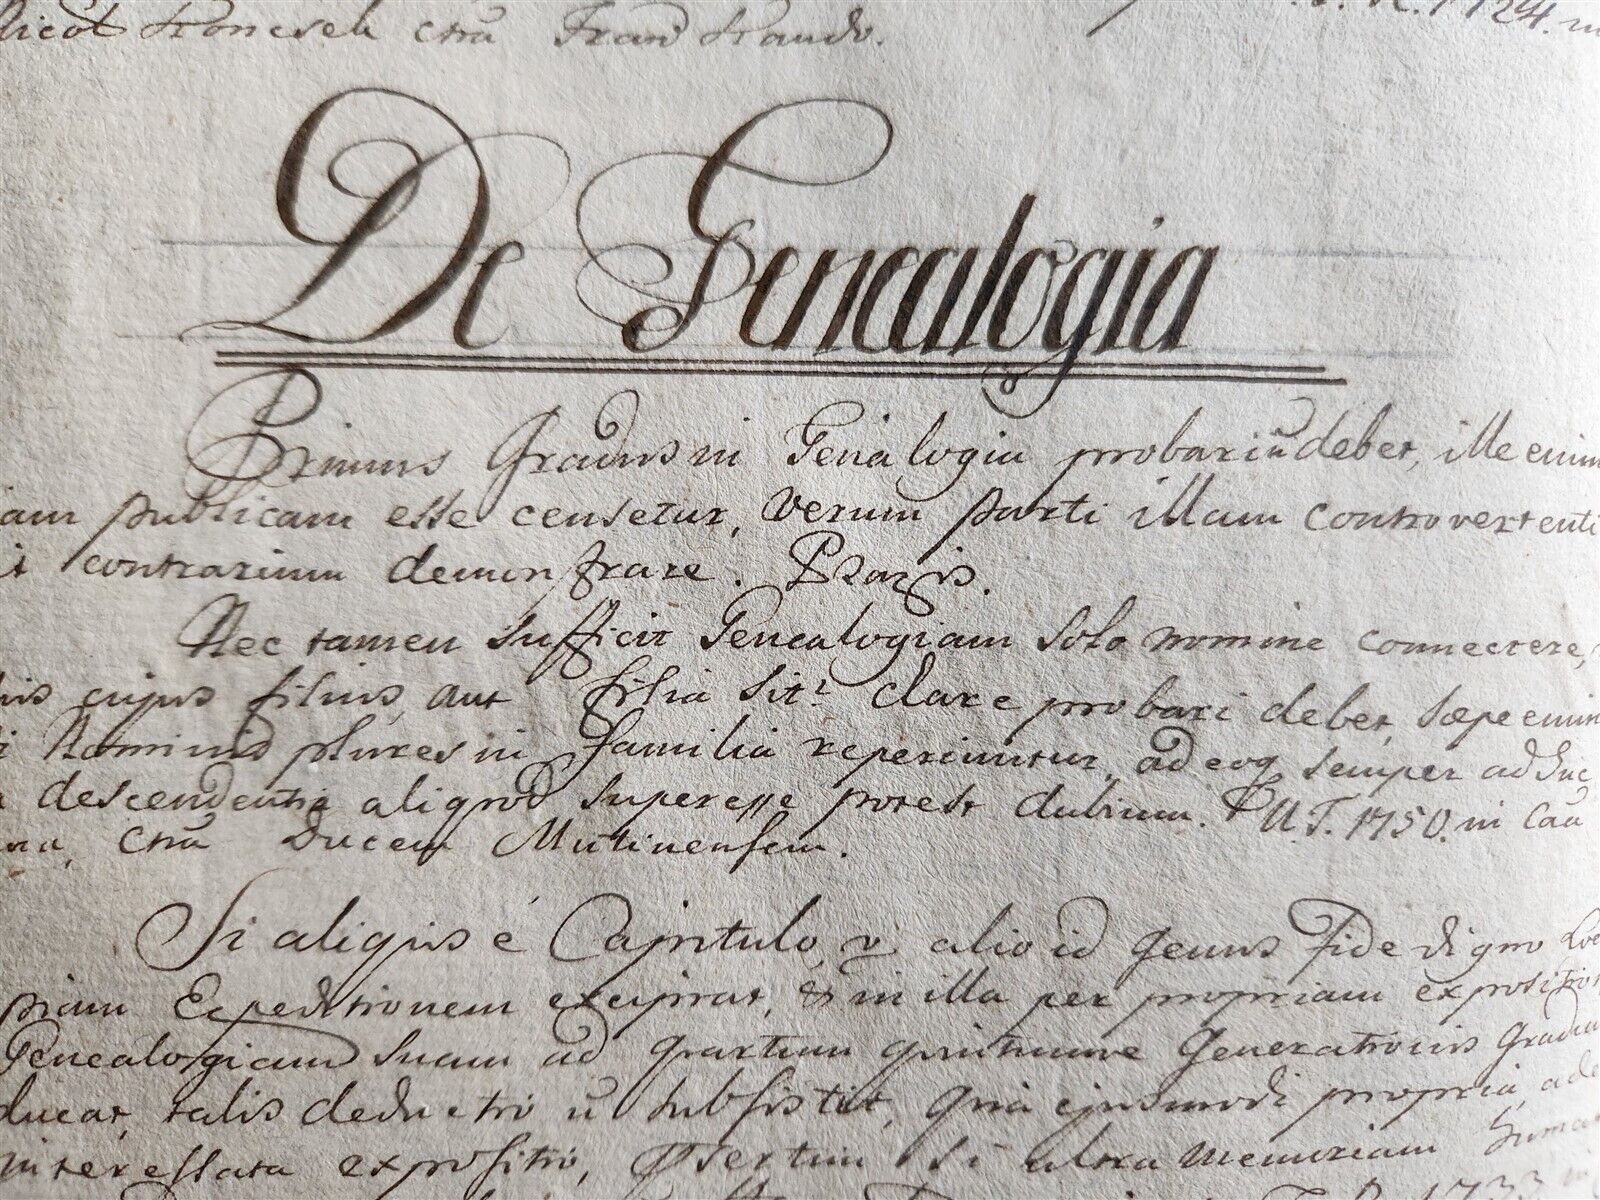 ctra Fran
1724. in
De Genealogia
Primus Gradus in Genealogia probari ñ debet, ille enim
am publicam esse censetur, verum parti illam controvertenti
t contrarium demonstrare. Praxis.
Nec tamen sufficit Genealogiam solo nomine connectere,
is cujus filius, aut filia sit? clare probari debet, sæpe enim
Nominis plures in familia reperiuntur, adeoq semper adhuc
descendentia aliquod superesse potest dubium. P U.T. 1750. in Caũ
na, ctrã Ducem Mutinensem.
Si aliquis é Capitulo, v alio id genus Fide digno Lo
piam Expeditionem excipiat, & in illa per propriam exposition
Genealogiam suam ad quartum quintumve Generationis Gradum
ducat, talis deductio ñ subsistit, quia ejusmodi propria, ade
interessata expositio, Presertim si ultra Memoriam huma
1733 in